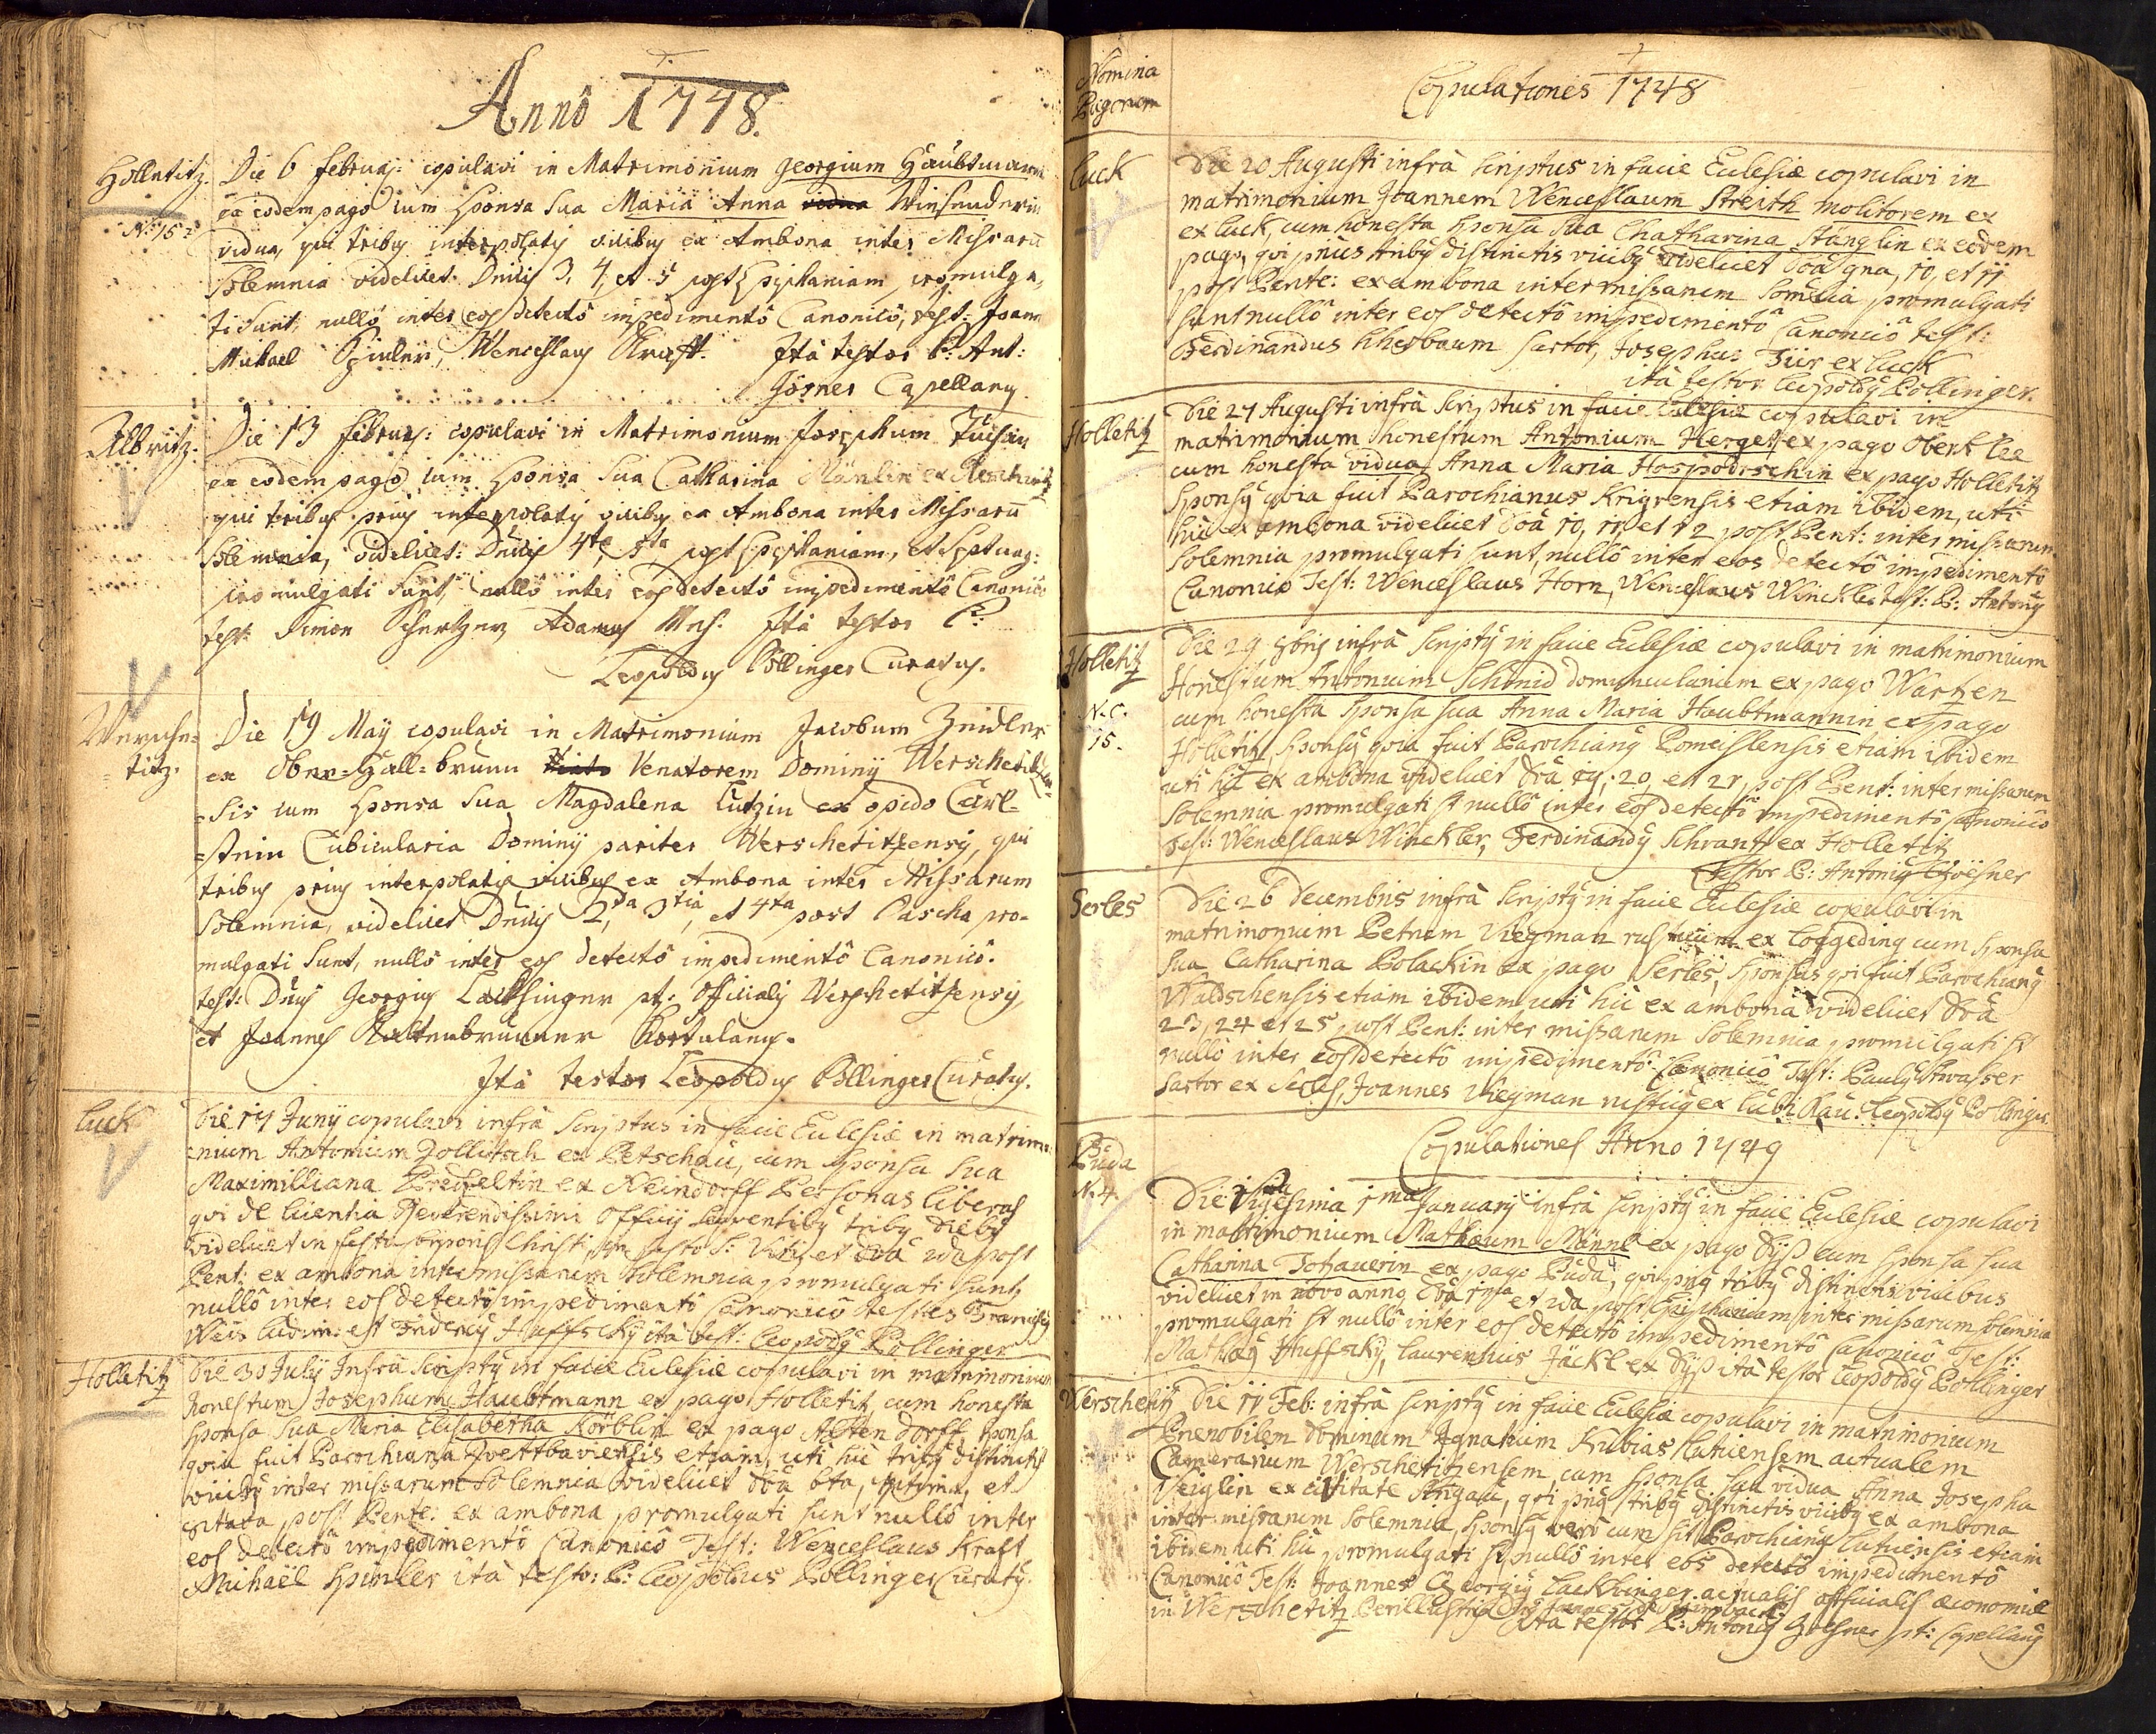 Anno 1748.
Holletitz.
N: 15
Die 6 februaij: copulavi in Matrimonium Georgium Haubtmann
ex eodem pago cum Sponsa sua Maria Anna
vidua, qui tribus interpolatis vicibus ex Ambona inter Missarum
Solemnia videlicet Dnicis 3, 4, et 5 post Epiphaniam promulga,
ti sunt, nullo inter eos detecto impedimento Canonico, test: Joann
Michael Wenceslaus Krafft. Ita testor P: Ant:
Görner Capellanus
Die 13 februaij: copulavi in Matrimonium Josephum
ex eodem pago cum Sponsa sua Catharina Mänlin ex
qui tribus prius interpolatis vicibus ex Ambona inter Missarum
Solemnia, videlicet: Dnicis 4ta 5ta post Epiphaniam, et Septuag:
promulgati sunt, nullo inter eos detecto impedimento Canonico
test: Simon Adamus Ita testor P:
Leopoldus Pöllinger Curatus.
Wersche=
titz.
Die 19 Maij copulavi in Matrimonium Jacobum Zeidler
ex Venatorem Dominij Werschetitzen=
=sis cum Sponsa sua Magdalena Lutzin ex opido Carl=
=stein Cubicularia Dominij pariter Werschetitzensis, qui
tribus prius interpolatis vicibus ex Ambona inter Missarum
Solemnia, videlicet Dnicis 2da 3tia, et 4ta post Pascha pro=
mulgati sunt, nullo inter eos detecto impedimento Canonico.
test: Dnus Georgius Lacksinger pt: Officialis Werschetitzensis,
et Joannes Kaltenbrunner Hortulanus.
Ita testor Leopoldus Pöllinger Curatus.
Luck
Die 17 Junij copulavi infra scriptus in facie Eclesiæ in matrimo=
=nium Antonium Zollitsch ex Petschau, cum Sponsa sua
Maximilliana ex Reindorff Personas liberas
qui de licentia Reverendissimi Officij sequentibus tribus diebus
videlicet in festo Corporis Christi, in festo S: Viti, et Dca 2da post
Pent: ex ambona inter missarum Solemnia promulgati sunt,
nullo inter eos detecto impedimento Canonico testes Franciscus
Weis et Fridericus Huffsky ita test: Leopoldus Pollinger
Holletitz
Die 30 Julij Infra Scriptus in facie Eclesiæ copulavi in matrimonium
honestum Josephum Haubtmann ex pago Holletitz cum honesta
Sponsa sua Maria Elisabetha Körblin ex pago Altendorff, sponsa
quia fuit Parochiana etiam, uti hic tribus distinctis
vicibus inter missarum Solemnia videlicet Dca 6ta, septima, et
octava post Pente: ex ambona promulgati sunt nullo inter
eos detecto impedimento Canonico Test: Wenceslaus Kraft
Michaël Spinler ita testor: P: Leopoldus Pollinger Curatus.
Nomina
Pagorum
Copulationes 1748
Luck
Die 20 Augusti infra scriptus in facie Eclesiæ copulavi in
matrimonium Joannem Wenceslaum Streith molitorem ex
ex Luck, cum honesta Sponsa sua Chatharina Stänglin ex eodem
pago, qui prius tribus distinctis vicibus videlicet Dca 9na, 10, et 11
post Pente: ex ambona inter missarum somēia promulgati
sunt nullo inter eos detecto impedimento Canonico test:
Ferdinandus sartor, Josephus Fur ex Luck
ita testor Leopoldus Pollinger.
Holletitz
Die 27 Augusti infra Scriptus in facie Eclesiæ copulavi in
matrimonium honestum Antonium Herget ex pago
cum honesta vidua Anna Maria Hospodrschin ex pago Holletitz
Sponsus quia fuit Parochianus Krigrensis etiam ibidem, uti
hic ex ambona videlicet Dca 10, 11, et 12 post Pent: inter missarum
Solemnia promulgati sunt, nullo inter eos detecto impedimento
Canonico Test: Wenceslaus Horn, Wenceslaus Winckler test: P: Antonius
Holletitz
N. C.
15.
Die 29 8bris infra scriptus in facie Eclesiæ copulavi in matrimonium
Honestum Antonium Schmid domunculanium ex pago Wartzen
cum honesta Sponsa sua Anna Maria Haubtmannin ex pago
Holletitz, Sponsus quia fuit Parochianus Pomeislensis etiam ibidem
uti hic ex ambona videlicet Dca 19, 20, et 21, post Pent: inter missarum
Solemnia promulgati st nullo inter eos detecto impedimento Canonico
Test: Wenceslaus Winckler, Ferdinandus Schrantz ex Holletitz
Testor P: Antonius Goësner
Serles
Die 26 Decembris infra scriptus in facie Eclesiæ copulavi in
matrimonium Petrum Wegman rusticum ex Loggeding cum Sponsa
sua Catharina Polackin ex pago Serles, Sponsus qui fuit Parochianus
Waltschensis etiam ibidem uti hic ex ambona videlicet Dca
23, 24 et 25, post Pent: inter missarum Solemnia promulgati st
nullo inter eos detecto impedimento Canonico Test: Paulus
sartor ex Serles, Joannes Wegman rusticus ex Leopoldus Pollinger.
Copulationes Anno 1749
Puda
N. 4.
Die Vigesima 1ma Januarij infra scriptus in facie Eclesiæ copulavi
in matrimonium Mathæum Männl ex pago Dÿß cum Sponsa sua
Catharina Tohauerin ex pago Puda, qui prius tribus distinctis vicibus
videlicet in novo anno, Dca 1ma et 2da post Epiphaniam inter missarum solemnia
promulgati st nullo inter eos detecto impedimento Canonico Test:
Mathæus Huffsky, Laurentius Jäckl ex Dÿß ita testor Leopoldus Pollinger
Werschetitz
Die 11 Feb: infra scriptus in facie Eclesiæ copulavi in matrimonium
Prænobilem Dominum Ignatium Kubias actualem
Camerarium Werschetitzensem, cum sponsa sua vidua Anna Josepha
ex civitate qui prius tribus distinctis vicibus ex ambona
inter missarum Solemnia, Sponsus vero cum sit Parochianus etiam
ibidem uti hic promulgati st nullo inter eos detecto impedimento
Canonico Test: Joannes Georgius Lacksinger actualis officialis œconomiæ
in Werschetitz
ita testor P: Antonius Goësner pt: Capellanus